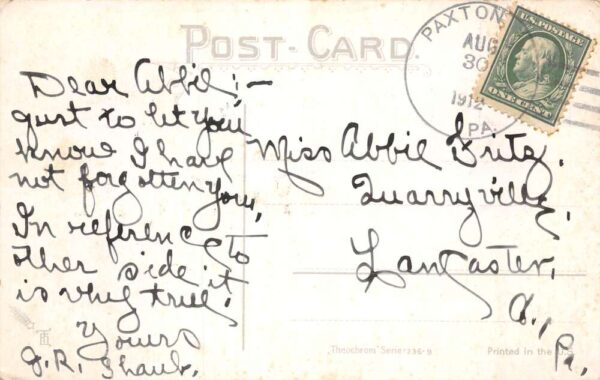 POST-CARD.
PAXTON
AUG
30
1912
PA.
U.S. POSTAGE
ONE CENT
Dear Abbie :-
Just to let you
know I have
not forgotten you,
In reference to
other side it
is very true.
Yours
J.R. Shaub.
Miss Abbie Fritz.
Quarryville,
Lancaster,
Co.,
Pa.
"Theochrom" Serie 236-9
Printed in the U.S.